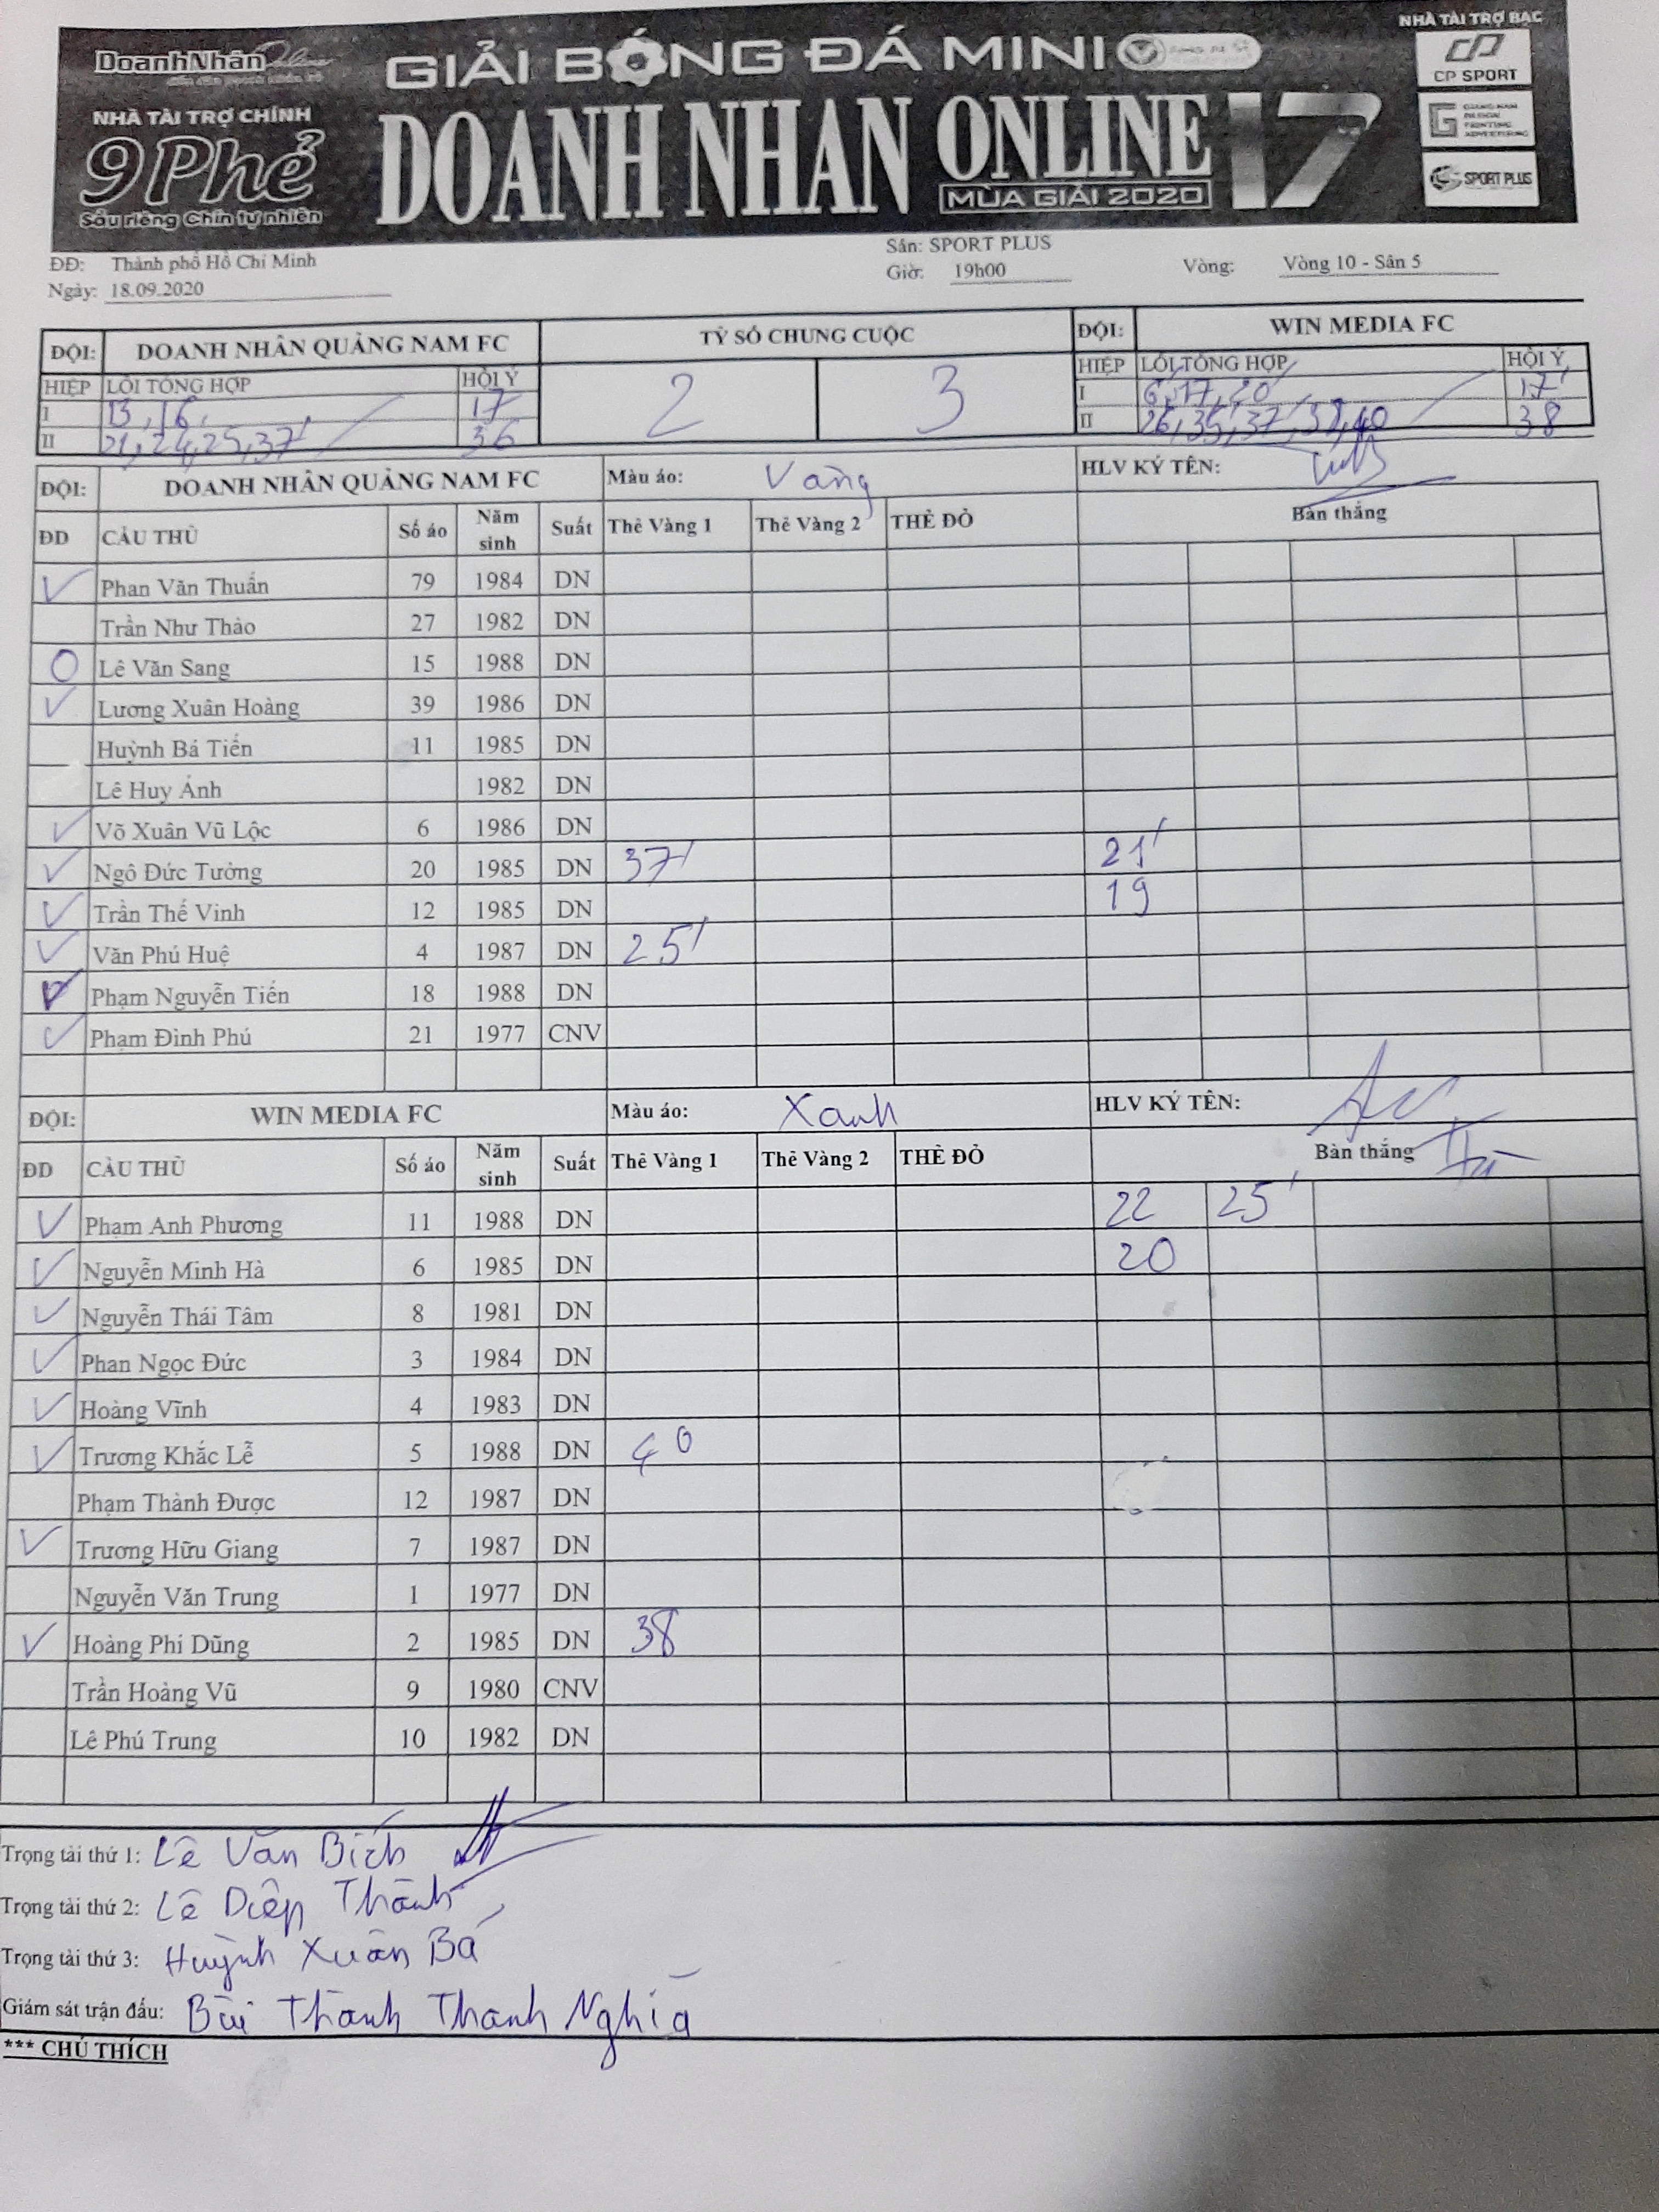 DoanhNhân Online
GIẢI BÓNG ĐÁ MINI
NHÀ TÀI TRỢ BẠC
CP SPORT
NHÀ TÀI TRỢ CHÍNH
9Phẻ
Sầu riêng Chín tự nhiên
DOANH NHAN ONLINE 17
MÙA GIẢI 2020
SPORT PLUS
ĐĐ: Thành phố Hồ Chí Minh
Sân: SPORT PLUS
Ngày: 18.09.2020
Giờ: 19h00
Vòng: Vòng 10 - Sân 5
ĐỘI: DOANH NHÂN QUẢNG NAM FC TỶ SỐ CHUNG CUỘC ĐỘI: WIN MEDIA FC
HIỆP LỖI TỔNG HỢP HỘI Ý 2 3 HIỆP LỖI TỔNG HỢP HỘI Ý
I 13, 16, 17 I 6, 17, 20' 17'
II 21, 24, 25, 37' 36 II 26, 35, 37, 38, 40 38
ĐỘI: DOANH NHÂN QUẢNG NAM FC Màu áo: Vàng HLV KÝ TÊN:
ĐD CẦU THỦ Số áo Năm sinh Suất Thẻ Vàng 1 Thẻ Vàng 2 THẺ ĐỎ Bàn thắng
✓ Phan Văn Thuấn 79 1984 DN
Trần Như Thảo 27 1982 DN
O Lê Văn Sang 15 1988 DN
✓ Lương Xuân Hoàng 39 1986 DN
Huỳnh Bá Tiến 11 1985 DN
Lê Huy Ánh 1982 DN
✓ Võ Xuân Vũ Lộc 6 1986 DN
✓ Ngô Đức Tường 20 1985 DN 37' 21'
✓ Trần Thế Vinh 12 1985 DN 19
✓ Văn Phú Huệ 4 1987 DN 25'
✓ Phạm Nguyễn Tiến 18 1988 DN
✓ Phạm Đình Phú 21 1977 CNV
ĐỘI: WIN MEDIA FC Màu áo: Xanh HLV KÝ TÊN:
ĐD CẦU THỦ Số áo Năm sinh Suất Thẻ Vàng 1 Thẻ Vàng 2 THẺ ĐỎ Bàn thắng
✓ Phạm Anh Phương 11 1988 DN 22 25'
✓ Nguyễn Minh Hà 6 1985 DN 20
✓ Nguyễn Thái Tâm 8 1981 DN
✓ Phan Ngọc Đức 3 1984 DN
✓ Hoàng Vĩnh 4 1983 DN
✓ Trương Khắc Lễ 5 1988 DN 40
Phạm Thành Được 12 1987 DN
✓ Trương Hữu Giang 7 1987 DN
Nguyễn Văn Trung 1 1977 DN
✓ Hoàng Phi Dũng 2 1985 DN 38
Trần Hoàng Vũ 9 1980 CNV
Lê Phú Trung 10 1982 DN
Trọng tài thứ 1: Lê Văn Bích
Trọng tài thứ 2: Lê Diệp Thành
Trọng tài thứ 3: Huỳnh Xuân Bá
Giám sát trận đấu: Bùi Thành Thanh Nghĩa
*** CHÚ THÍCH